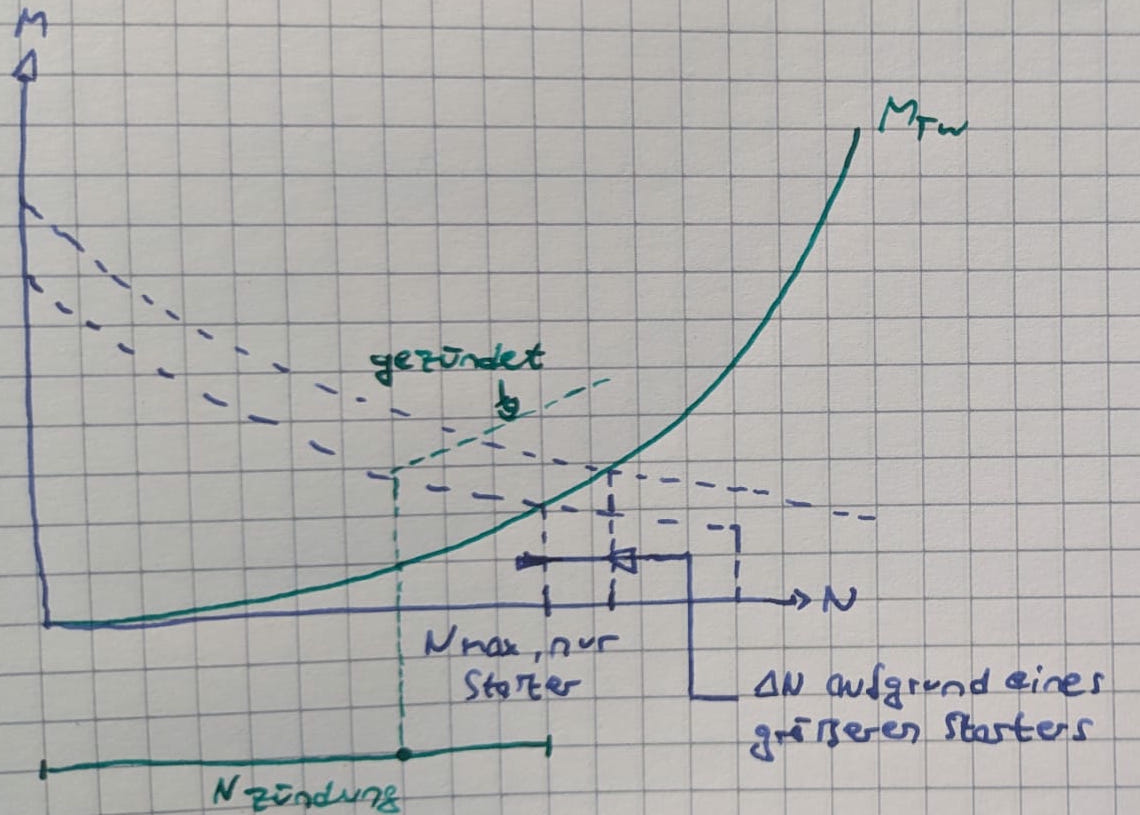 M
M_TW
gezündet
N
N max, nur
Starter
ΔN aufgrund eines
größeren Starters
N zündung